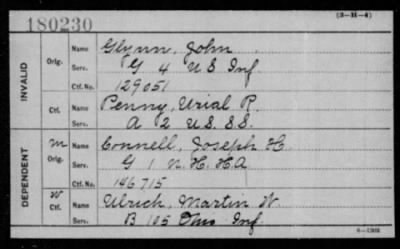 180230
(3-H-4)
INVALID
Orig. Name Glynn, John
Serv. G 4 U S Inf
Ctf. No. 129051
Ctf. Name Penny, Urial P.
Serv. A 2 U.S. S.S.
DEPENDENT
M
Orig. Name Connell, Joseph H.
Serv. G 1 N. H. H.A
Ctf. No. 146715
W
Ctf. Name Ulrich, Martin W.
Serv. B 105 Ohio Inf.